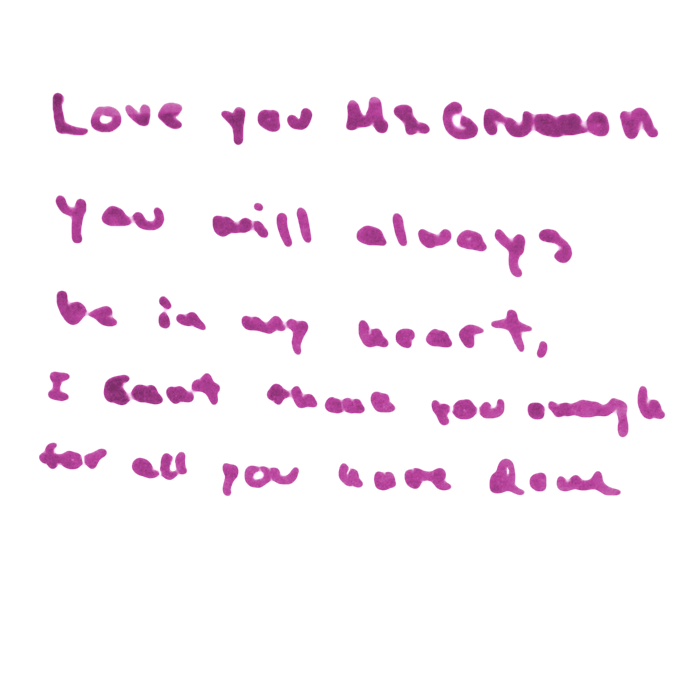 Love you Ms.
you will always
be in my heart,
I Cant thank you enough
for all you have Done